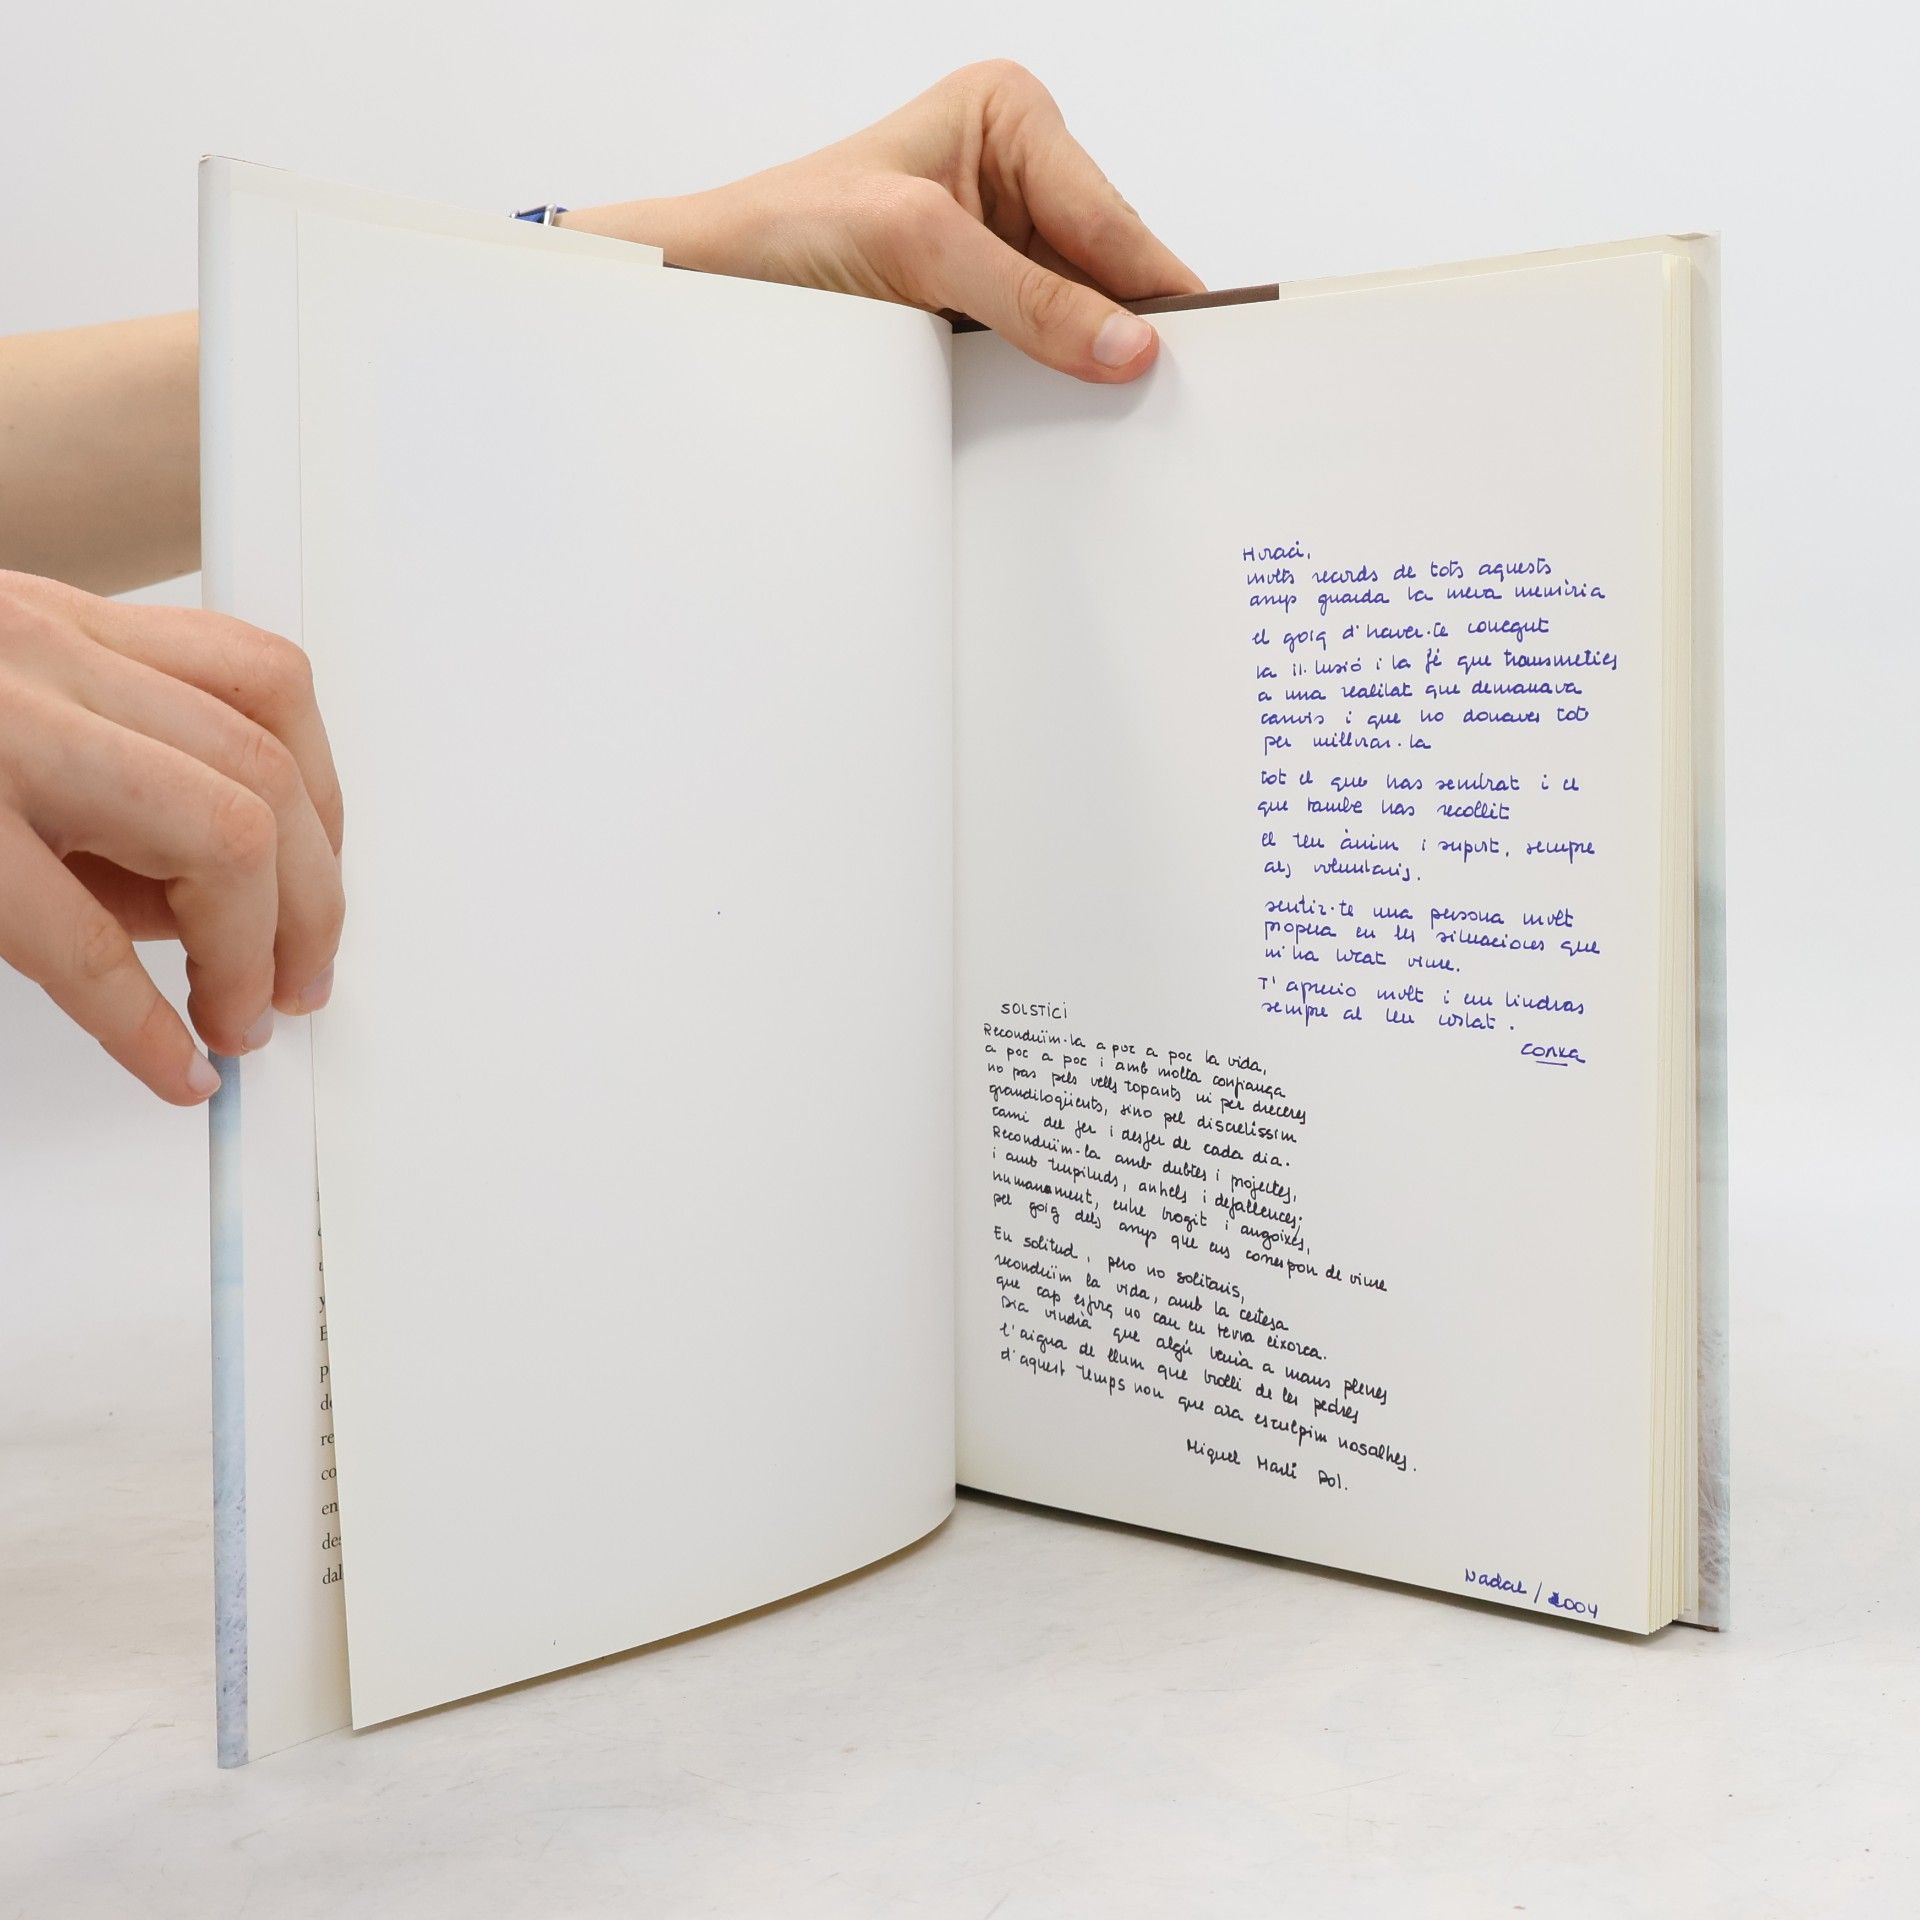 Horaci,
molts records de tots aquests
anys guarda la meva memòria
el goig d'haver-te conegut
la il·lusió i la fé que transmeties
a una realitat que demanava
canvis i que ho donaves tot
per millorar-la
tot el que has sembrat i el
que també has recollit
el teu ànim i suport, sempre
als voluntaris.
sentir-te una persona molt
propera en les situacions que
m'ha tocat viure.
T'aprecio molt i em tindràs
sempre al teu costat.
conxa
SOLSTICI
Reconduïm-la a poc a poc la vida,
a poc a poc i amb molta confiança
no pas pels vells topants ni per dreceres
grandiloqüents, sino pel discretíssim
camí del fer i desfer de cada dia.
Reconduïm-la amb dubtes i projectes,
i amb turpituds, anhels i defallences;
humanament, entre brogit i angoixes,
pel goig dels anys que ens correspon de viure
En solitud, pero no solitaris,
reconduïm la vida, amb la certesa
que cap esforç no cau en terra eixorca.
Dia vindrà que algú beurà a mans plenes
l'aigua de llum que brolli de les pedres
d'aquest temps nou que ara esculpim nosaltres.
Miquel Martí Pol.
Nadal / 2004
y
E
p
de
re
co
en
des
dal